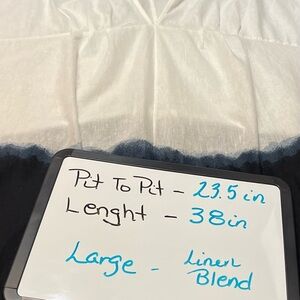 Pit To Pit - 23.5 in
Lenght - 38 in
Large - Linen
Blend